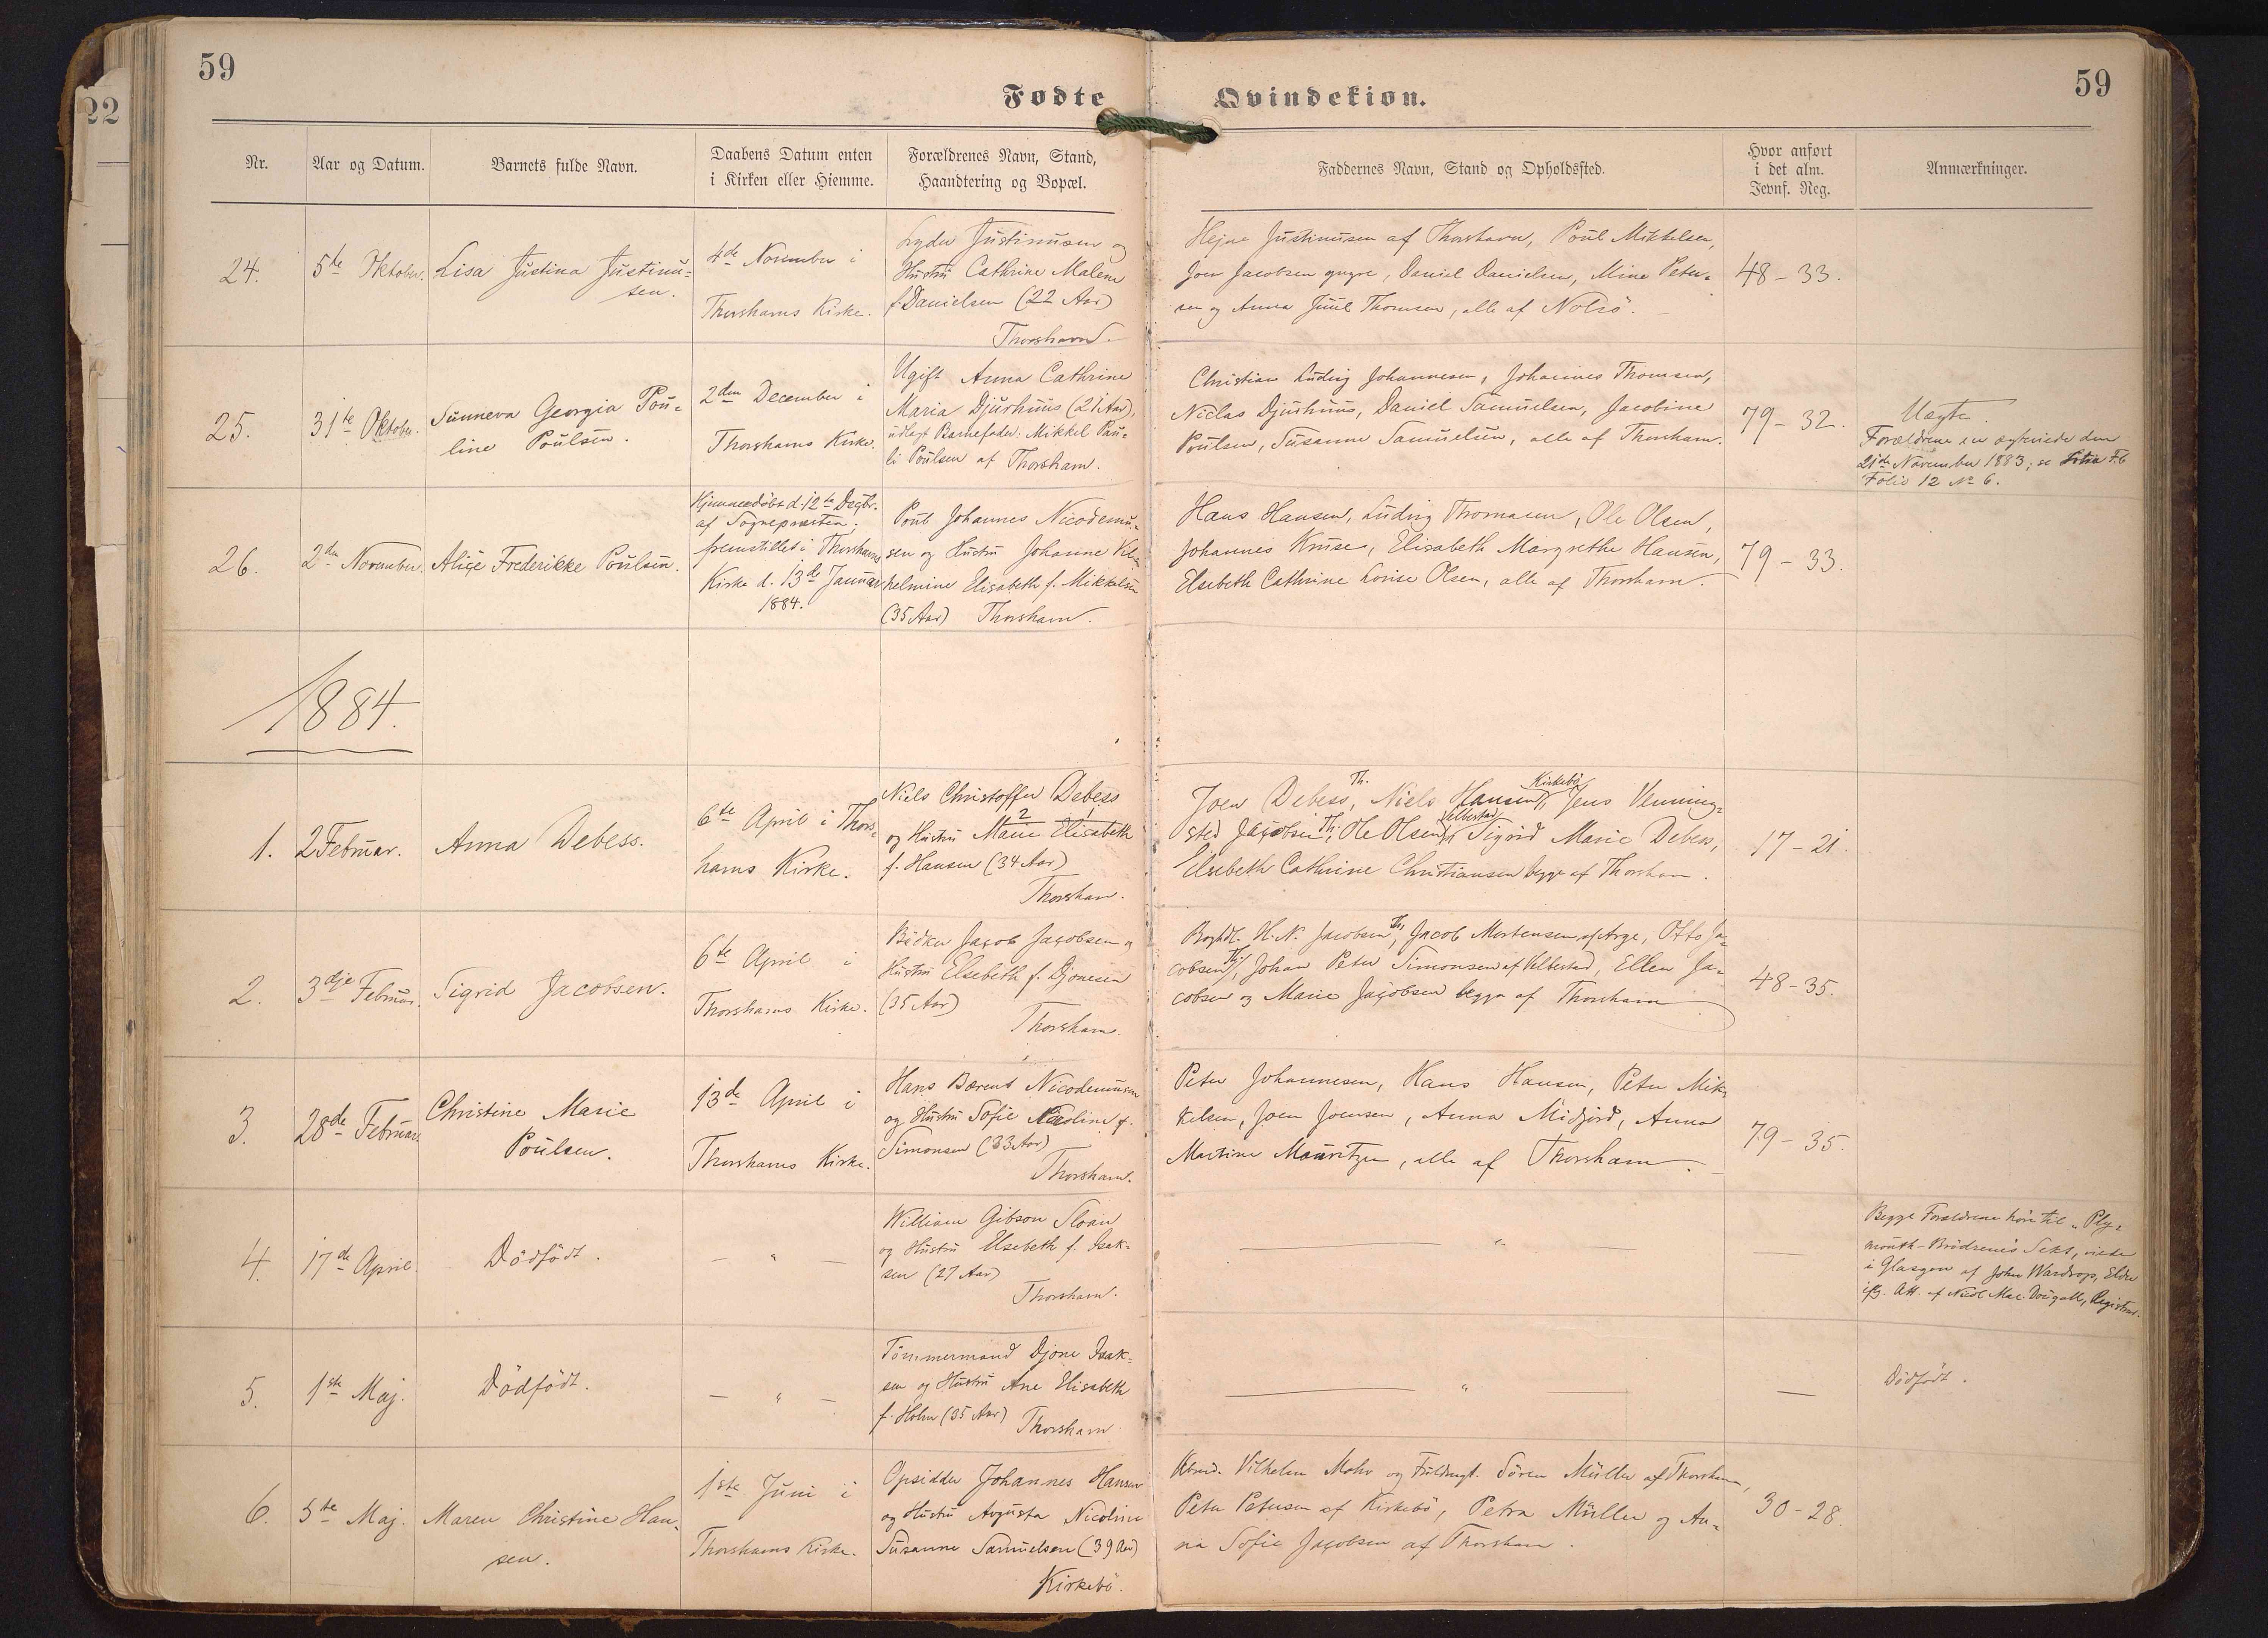 59
59
22
Fødte
Qvindekiøn.
Nr.
Aar og Datum.
Barnets fulde Navn.
Daabens Datum enten
i Kirken eller Hiemme.
Forældrenes Navn, Stand,
Haandtering og Bopæl.
Faddernes Navn, Stand og Opholdssted.
Hvor anført
i det alm.
Jevnf. Reg.
Anmærkninger.
24.
5te Oktober.
Lisa Justina Justinu-
sen.
4de November i
Thorshavns Kirke.
Justinusen og
Hustru Cathrine Malene
f. Danielsen (22 Aar)
Thorshavn.
Hejne Justinusen af Thorshavn, Poul Mikkelsen,
Joen Jacobsen yngre, Daniel Danielsen, Mine Peter-
sen og Anna Juul Thomsen, alle af Nolsö.
48-33.
25.
31te Oktober.
Sunneva Georgia Pou-
line Poulsen.
2den December i
Thorshavns Kirke.
Ugift Anna Cathrine
Maria Djurhuus (21 Aar),
udlagt Barnefader: Mikkel Pau-
li Poulsen af Thorshavn.
Christian Ludvig Johannesen, Johannes Thomsen,
Niclas Djurhuus, Daniel Samuelsen, Jacobine
Poulsen, Susanne Samuelsen, alle af Thorshavn.
79-32.
Uægte.
Forældrene ere ægteviede den
21de November 1883, se F.6
Folio 12 No 6.
26.
2den November.
Alice Frederikke Poulsen.
Hjemmedöbt d. 12te Decbr.
af Sognepræsten.
fremstillet i Thorshavns
Kirke d. 13de Januar
1884.
Poul Johannes Nicodemu-
sen og Hustru Johanne Vil-
helmine Elisabeth f. Mikkelsen
(35 Aar) Thorshavn.
Hans Hansen, Ludvig Thomasen, Ole Olsen,
Johannes Kruse, Elisabeth Margrethe Hansen,
Elsebeth Cathrine Lovise Olsen, alle af Thorshavn.
79-33.
1884.
1.
2 Februar.
Anna Debess.
6te April i Thors-
havns Kirke.
Niels Christoffer Debess
2 1
og Hustru Marie Elisabeth
f. Hansen (34 Aar)
Thorshavn.
Th. Kirkebö
Joen Debess, Niels Hansen, Jens Venning-
Velbestad
sted Jacobsen Th., Ole Olsen, Sigrid Marie Debess,
Elsebeth Cathrine Christiansen begge af Thorshavn.
17-21.
2.
3dje Februar.
Sigrid Jacobsen.
6te April i
Thorshavns Kirke.
Bödker Jacob Jacobsen og
Hustru Elsebeth f. Djonesen
(35 Aar)
Thorshavn.
Boghdl. H. N. Jacobsen Th, Jacob Mortensen af Arge, Otto Ja-
cobsen Th, Johan Peter Simonsen af Velbestad, Ellen Ja-
cobsen og Marie Jacobsen begge af Thorshavn
48-35.
3.
28de Februar.
Christine Marie
Poulsen.
13de April i
Thorshavns Kirke.
Hans Bærent Nicodemusen
og Hustru Sofie Nicoline f.
Simonsen (33 Aar)
Thorshavn.
Peter Johannesen, Hans Hansen, Peter Mik-
kelsen, Joen Joensen, Anna Midjord, Anna
Martine Mouritzen, alle af Thorshavn.
79-35.
4.
17de April.
Dödfödt.
— „ —
William Gibson Sloan
og Hustru Elsebeth f. Isak-
sen (27 Aar)
Thorshavn.
— „ —
—
Begge Forældrene höre til „Ply-
mouth-Brödrene's Sekt, viede
i Glasgow af John Wardrop, Elder
ifg. Att. af Neil Mac. Dougall, Registrar.
5.
1ste Maj.
Dödfödt.
— „ —
Tömmermand Djone Isak-
sen og Hustru Ane Elisabeth
f. Holm (35 Aar)
Thorshavn
— „
—
Dödfödt.
6.
5te Maj.
Maren Christine Han-
sen.
1ste Juni i
Thorshavns Kirke.
Opsidder Johannes Hansen
og Hustru Augusta Nicoline
Susanne Samuelsen (39 Aar)
Kirkebö.
Vilhelm Mohr og Fuldmgt. Sören Müller af Thorshavn,
Peter Petersen af Kirkebö, Petra Müller og An-
na Sofie Jacobsen af Thorshavn.
30-28.